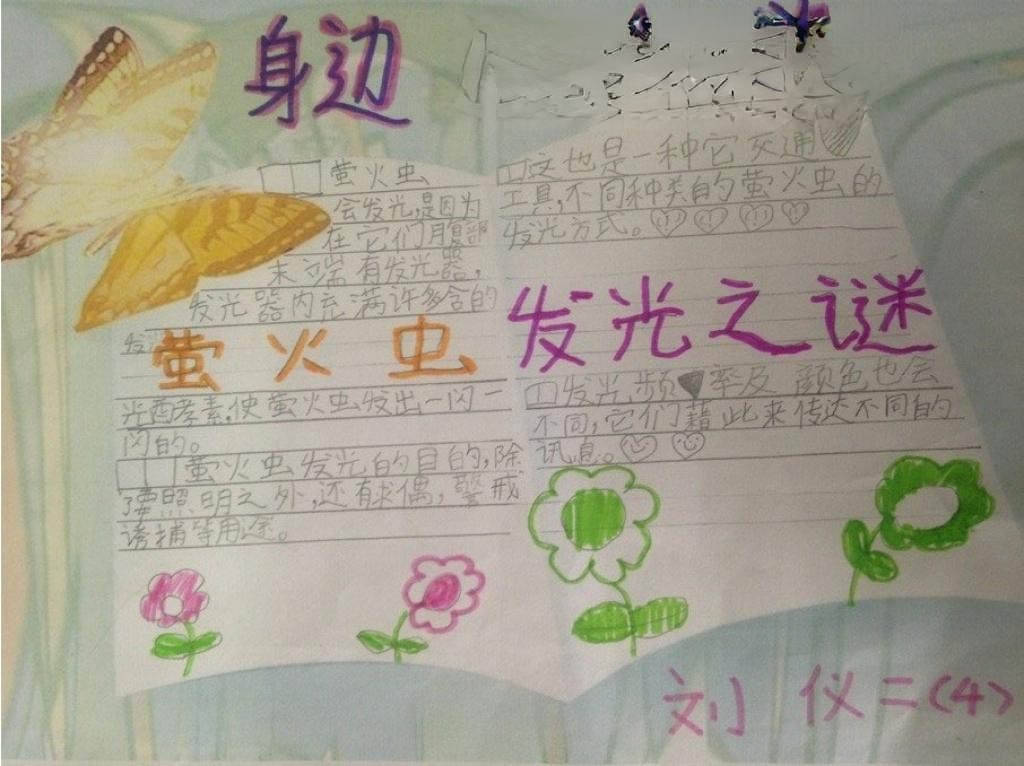 身边
萤火虫
会发光,是因为
在它们腹部
末端有发光器,
发光器内充满许多含的
发
萤火虫
光酵素,使萤火虫发出一闪一
闪的。
萤火虫发光的目的,除
了要照明之外,还有求偶,警戒
诱捕等用途。
这也是一种它交通
工具,不同种类的萤火虫的
发光方式。
发光之谜
发光频率及颜色也会
不同,它们藉此来传达不同的
讯息。
刘仪二(4)